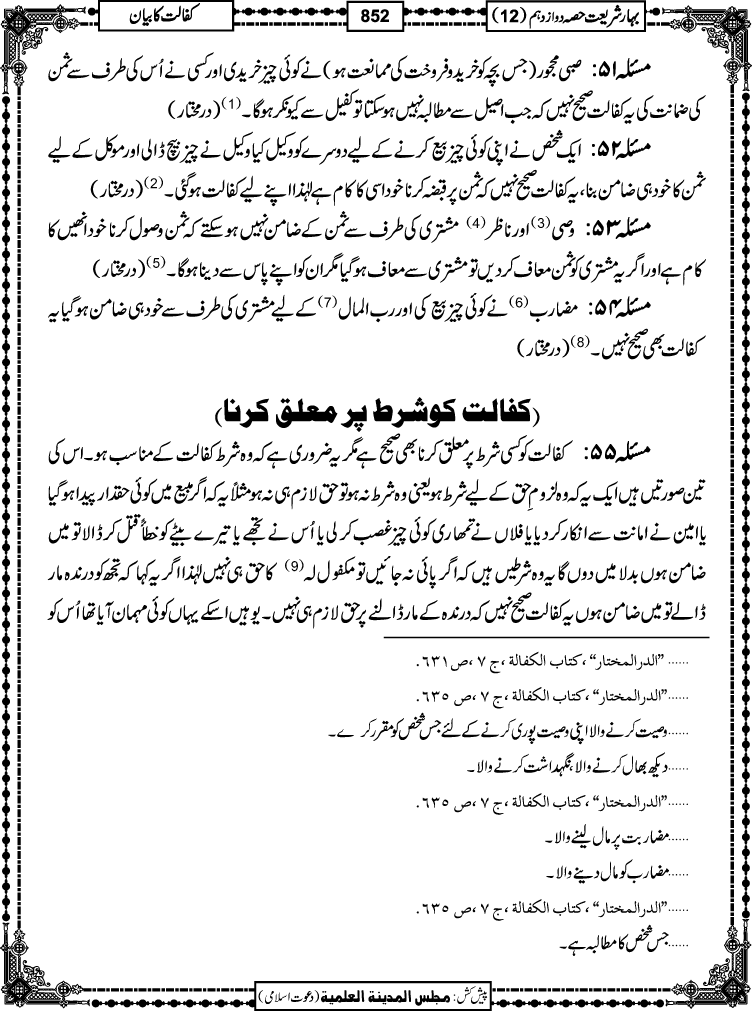 بہار شریعت حصہ دوازدہم (12)
852
کفالت کا بیان
مسئلہ ۵۱: صبی محجور (جس بچہ کو خرید و فروخت کی ممانعت ہو) نے کوئی چیز خریدی اور کسی نے اُس کی طرف سے ثمن
کی ضمانت کی یہ کفالت صحیح نہیں کہ جب اصیل سے مطالبہ نہیں ہوسکتا تو کفیل سے کیونکر ہوگا۔(1) (درمختار)
مسئلہ ۵۲: ایک شخص نے اپنی کوئی چیز بیع کرنے کے لیے دوسرے کو وکیل کیا وکیل نے چیز بیچ ڈالی اور موکل کے لیے
ثمن کا خود ہی ضامن بنا، یہ کفالت صحیح نہیں کہ ثمن پر قبضہ کرنا خود اسی کا کام ہے لہٰذا اپنے لیے کفالت ہوگئی۔(2) (درمختار)
مسئلہ ۵۳: وصی(3) اور ناظر(4) مشتری کی طرف سے ثمن کے ضامن نہیں ہوسکتے کہ ثمن وصول کرنا خود انھیں کا
کام ہے اور اگر یہ مشتری کو ثمن معاف کردیں تو مشتری سے معاف ہوگیا مگر ان کو اپنے پاس سے دینا ہوگا۔(5) (درمختار)
مسئلہ ۵۴: مضارب(6) نے کوئی چیز بیع کی اور رب المال(7) کے لیے مشتری کی طرف سے خود ہی ضامن ہوگیا یہ
کفالت بھی صحیح نہیں۔(8) (درمختار)
(کفالت کو شرط پر معلق کرنا)
مسئلہ ۵۵: کفالت کو کسی شرط پر معلق کرنا بھی صحیح ہے مگر یہ ضروری ہے کہ وہ شرط کفالت کے مناسب ہو۔ اس کی
تین صورتیں ہیں ایک یہ کہ وہ لزومِ حق کے لیے شرط ہو یعنی وہ شرط نہ ہو تو حق لازم ہی نہ ہو مثلاً یہ کہ اگر مبیع میں کوئی حقدار پیدا ہوگیا
یا امین نے امانت سے انکار کردیا یا فلاں نے تمھاری کوئی چیز غصب کرلی یا اُس نے تجھے یا تیرے بیٹے کو خطاً قتل کر ڈالا تو میں
ضامن ہوں بدلا میں دوں گا یہ وہ شرطیں ہیں کہ اگر پائی نہ جائیں تو مکفول لہ(9) کا حق ہی نہیں لہٰذا اگر یہ کہا کہ تجھ کو درندہ مار
ڈالے تو میں ضامن ہوں یہ کفالت صحیح نہیں کہ درندہ کے مار ڈالنے پر حق لازم ہی نہیں۔ یوہیں اسکے یہاں کوئی مہمان آیا تھا اُس کو
......"الدرالمختار"، کتاب الکفالة، ج ۷، ص ٦۳۱.
......"الدرالمختار"، کتاب الکفالة، ج ۷، ص ٦۳۵.
......وصیت کرنے والا اپنی وصیت پوری کرنے کے لئے جس شخص کو مقرر کرے۔
......دیکھ بھال کرنے والا، نگہداشت کرنے والا۔
......"الدرالمختار"، کتاب الکفالة، ج ۷، ص ٦۳۵.
......مضاربت پر مال لینے والا۔
......مضارب کو مال دینے والا۔
......"الدرالمختار"، کتاب الکفالة، ج ۷، ص ٦۳۵.
......جس شخص کا مطالبہ ہے۔
پیش کش: مجلس المدینة العلمیة (دعوت اسلامی)